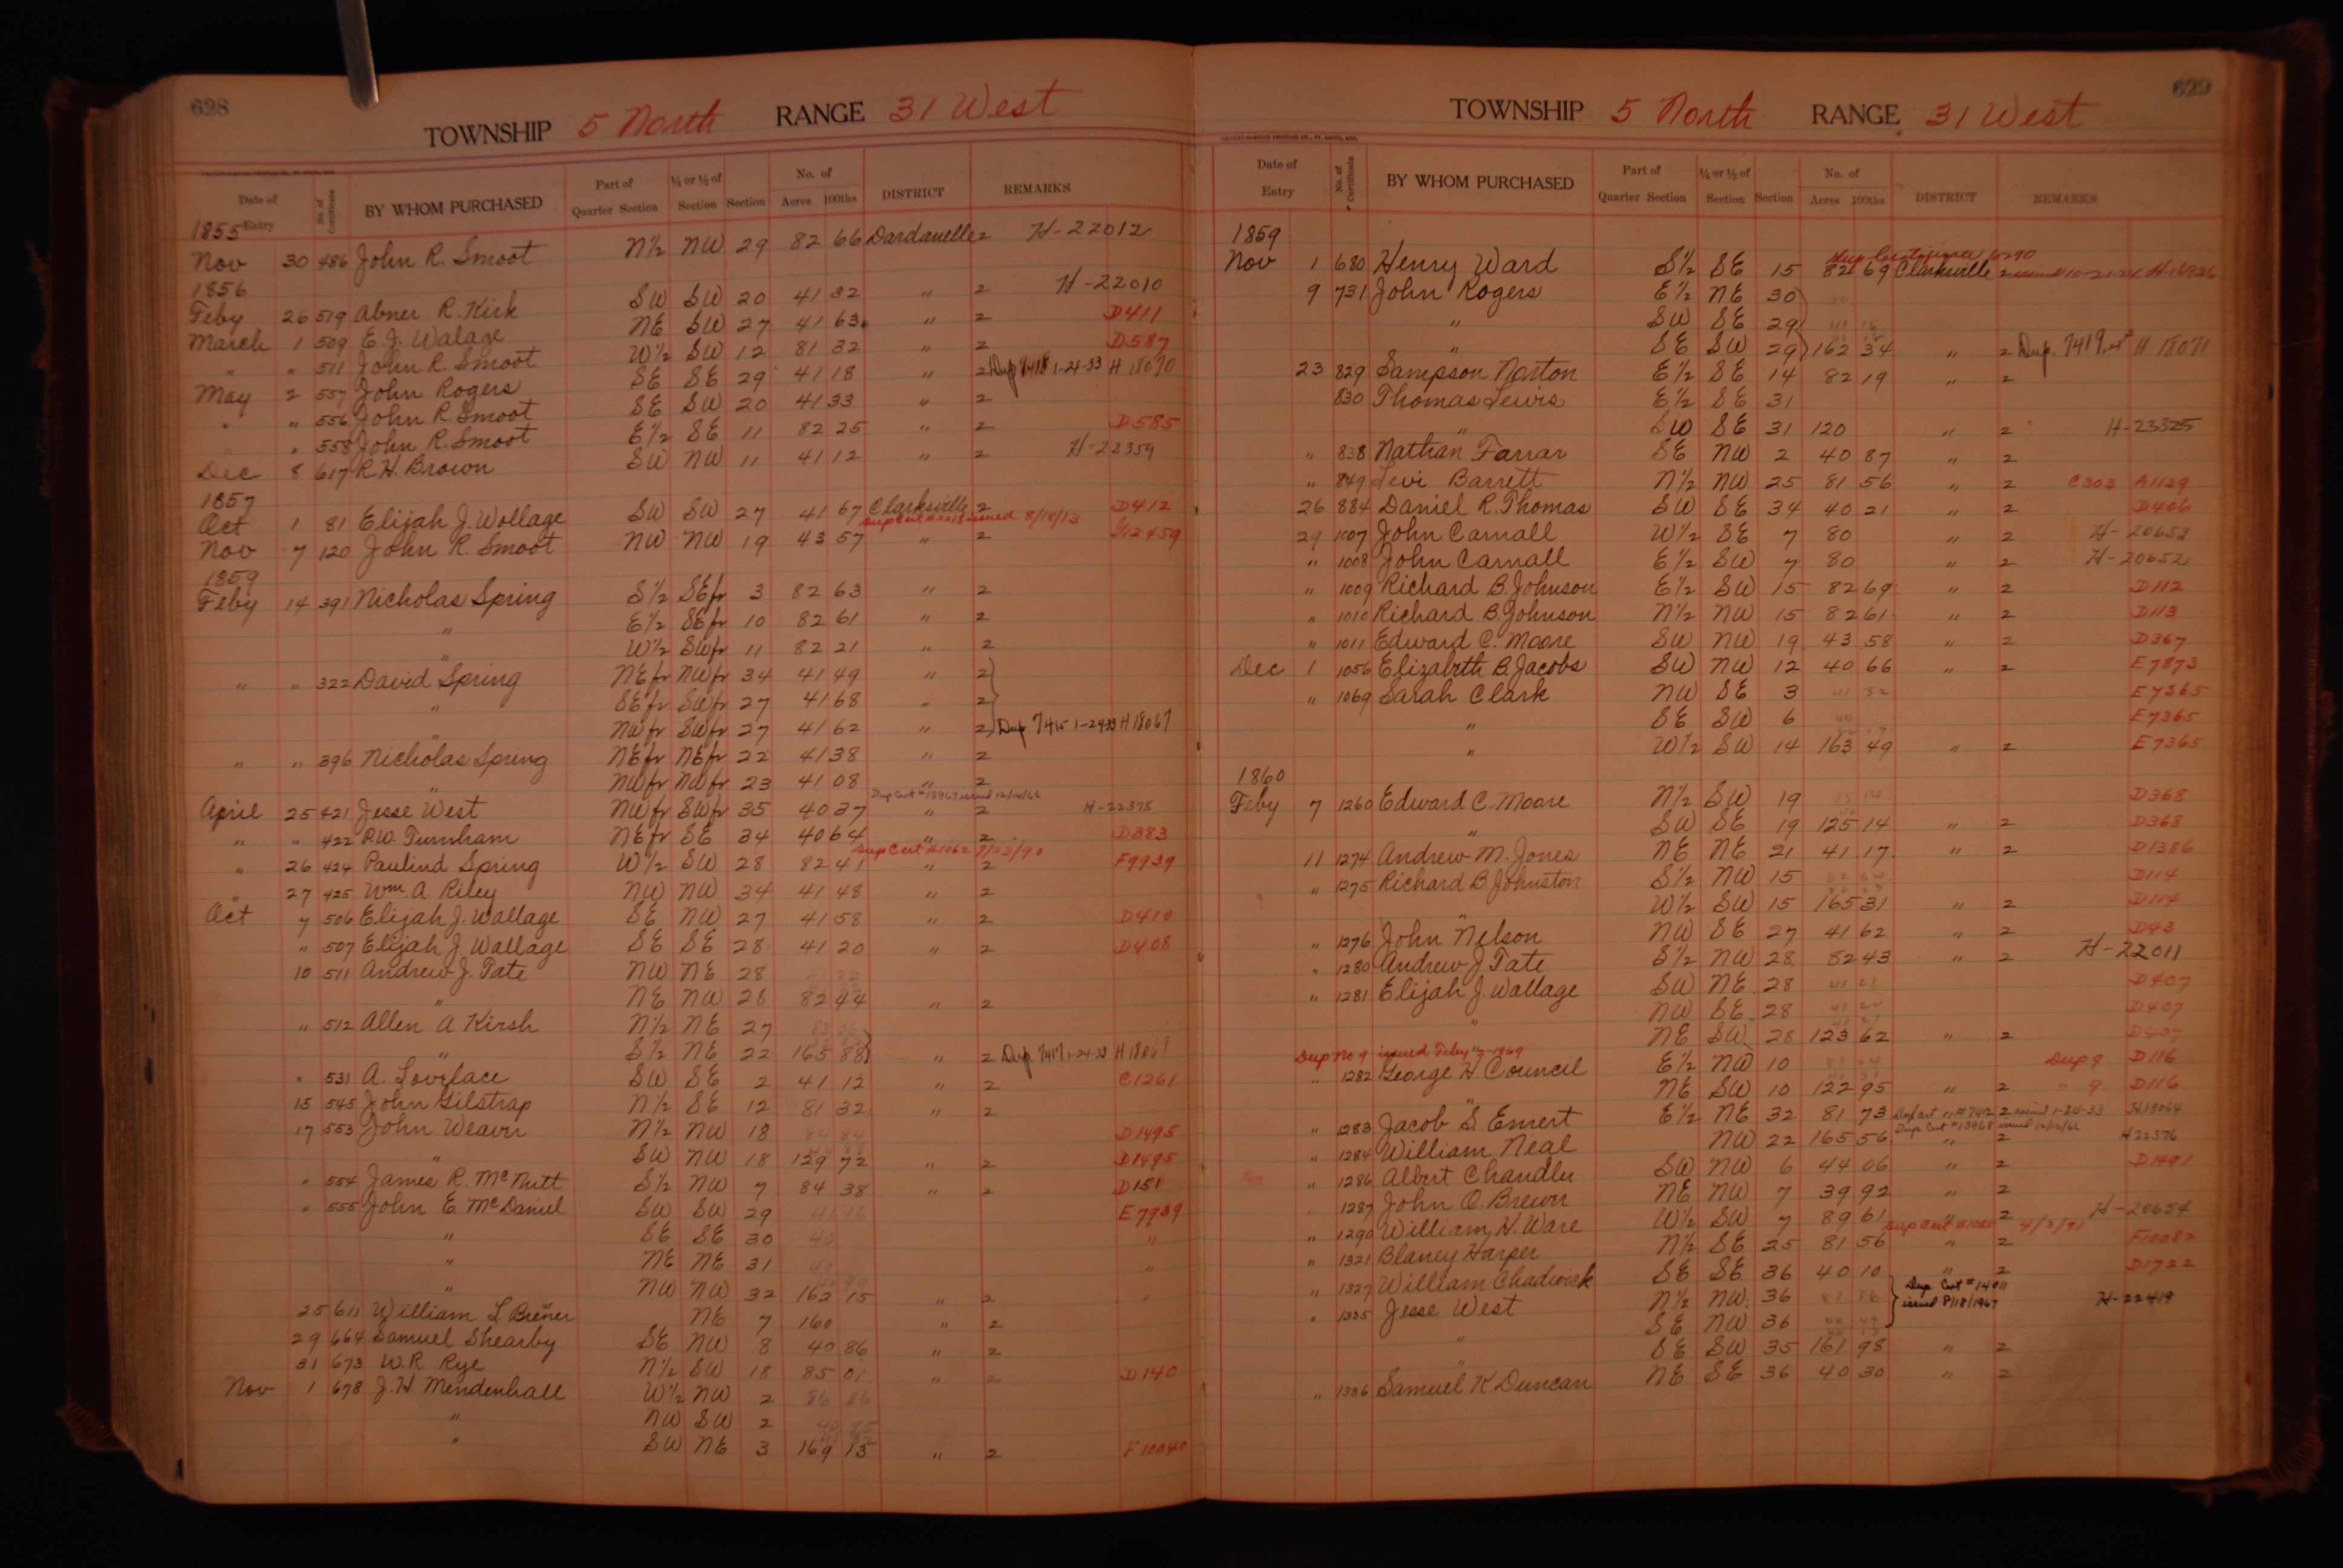 628
TOWNSHIP 5 North RANGE 31 West
Date of Entry No. of Certificate BY WHOM PURCHASED Part of Quarter Section ¼ or ½ of Section Section No. of Acres 100ths DISTRICT REMARKS
1855
Nov 30 486 John R. Smoot N½ NW 29 82 66 Dardanelle 2 H-22012
1856
Feby 26 519 Abner R. Kirk SW SW 20 41 32 " 2 H-22010
March 1 509 E. J. Walage NE SW 27 41 63 " 2 D411
" " 511 John R. Smoot W½ SW 12 81 32 " 2 D587
May 2 557 John Rogers SE SE 29 41 18 " 2 Dup 7418 1-24-33 H 18070
" " 556 John R. Smoot SE SW 20 41 33 " 2
" " 558 John R. Smoot E½ SE 11 82 25 " 2 D585
Dec 8 617 R. H. Brown SW NW 11 41 12 " 2 H-22359
1857
Oct 1 81 Elijah J. Wollage SW SW 27 41 67 Clarksville 2 D412
Dup Cert # issued 8/14/13
Nov 7 120 John R. Smoot NW NW 19 43 57 " 2 G12459
1859
Feby 14 391 Nicholas Spring S½ SEfr 3 82 63 " 2
" E½ SEfr 10 82 61 " 2
" W½ SWfr 11 82 21 " 2
" " 322 David Spring NEfr NWfr 34 41 49 " 2
" SEfr SWfr 27 41 68 " 2
" NWfr SWfr 27 41 62 " 2 Dup 7415 1-24-33 H 18067
" " 396 Nicholas Spring NEfr NEfr 22 41 38 " 2
" NWfr NWfr 23 41 08 " 2
Dup Cert #13967 issued 12/14/66
April 25 421 Jesse West NWfr SWfr 35 40 37 " 2 H-22375
" " 422 P. W. Turnham NEfr SE 34 40 64 " 2 D383
Dup Cert #1062 7/23/90
" 26 424 Paulind Spring W½ SW 28 82 41 " 2 F9939
" 27 425 Wm. A Riley NW NW 34 41 48 " 2
Oct 7 506 Elijah J. Wallage SE NW 27 41 58 " 2 D410
" 507 Elijah J. Wallage SE SE 28 41 20 " 2 D408
10 511 Andrew J. Tate NW NE 28
" NE NW 28 82 44 " 2
" 512 Allen A Kirsh N½ NE 27
" S½ NE 22 165 88 " 2 Dup. 7417 1-24-33 H 18069
" 531 A. Lovelace SW SE 2 41 12 " 2 C1261
15 545 John Gilstrap N½ SE 12 81 32 " 2
17 553 John Weaver N½ NW 18 84 84 D1495
" SW NW 18 129 72 " 2 D1495
" 554 James R. McNutt S½ NW 7 84 38 " 2 D151
" 555 John E McDaniel SW SW 29 41 16 E7939
" SE SE 30 40 "
" NE NE 31 40 "
" NW NW 32 162 15 " 2 "
25 611 William L. Briener NE 7 160 " 2
29 664 Samuel Shearby SE NW 8 40 86 " 2
31 673 W. R. Rye N½ SW 18 85 01 " 2 D140
Nov 1 678 J. H. Mendenhall W½ NW 2 86 86
" NW SW 2
" SW NE 3 169 13 " 2 F10040
629
TOWNSHIP 5 North RANGE 31 West
Date of Entry No. of Certificate BY WHOM PURCHASED Part of Quarter Section ¼ or ½ of Section Section No. of Acres 100ths DISTRICT REMARKS
1859
Nov 1 680 Henry Ward S½ SE 15 82 69 Clarksville 2
9 731 John Rogers E½ NE 30
" SW SE 29
" SE SW 29 162 34 " 2 Dup. 7419 H 18071
23 829 Sampson Norton E½ SE 14 82 19 " 2
830 Thomas Lewis E½ SE 31
" SW SE 31 120 " 2 H-23325
" 838 Nathan Farrar SE NW 2 40 87 " 2
" 849 Levi Barrett N½ NW 25 81 56 " 2 C303 A1129
26 884 Daniel R. Thomas SW SE 34 40 21 " 2 D406
29 1007 John Carnall W½ SE 7 80 " 2 H-20653
" 1008 John Carnall E½ SW 7 80 " 2 H-20652
" 1009 Richard B. Johnson E½ SW 15 82 69 " 2 D112
" 1010 Richard B. Johnson N½ NW 15 82 61 " 2 D113
" 1011 Edward C. Moore SW NW 19 43 58 " 2 D367
Dec 1 1056 Elizabeth B. Jacobs SW NW 12 40 66 " 2 E7873
" 1069 Sarah Clark NW SE 3 41 32 E7365
" SE SW 6 40 E7365
" W½ SW 14 163 49 " 2 E7365
1860
Feby 7 1260 Edward C. Moore N½ SW 19 D368
" SW SE 19 125 14 " 2 D368
11 1274 Andrew M. Jones NE NE 21 41 17 " 2 D1386
" 1275 Richard B Johnston S½ NW 15 D114
" W½ SW 15 165 31 " 2 D114
" 1276 John Nelson NW SE 27 41 62 " 2 D43
" 1280 Andrew J Tate S½ NW 28 82 43 " 2 H-22011
" 1281 Elijah J. Wallage SW NE 28 41 21 D407
" NW SE 28 41 20 D407
NE SW 28 123 62 " 2 D407
Dup No 9 issued Feby 1869
" 1282 George H. Council E½ NW 10 Dup 9 D116
" NE SW 10 122 95 " 2 " 9 D116
" 1283 Jacob S. Emert E½ NE 32 81 73 Dup Cert # 7412 2 issued 1-24-33 H18064
Dup Cert #13968 issued 12/14/66
" 1284 William Neal NW 22 165 56 " 2 H22376
" 1286 Albert Chandler SW NW 6 44 06 " 2 D1491
" 1287 John O. Brewer NE NW 7 39 92 " 2
" 1290 William H. Ware W½ SW 7 89 61 " 2 H-20654
Dup Cert #1085 4/3/91
" 1321 Blaney Harper N½ SE 25 81 56 " 2 F10082
" 1327 William Chadwick SE SE 36 40 10 " 2 D1722
" 1335 Jesse West N½ NW 36 81 86 Dup. Cert # 14011 issued 8/18/1967 H-22419
" SE NW 36
" SE SW 35 161 98 " 2
" 1336 Samuel K Duncan NE SE 36 40 30 " 2